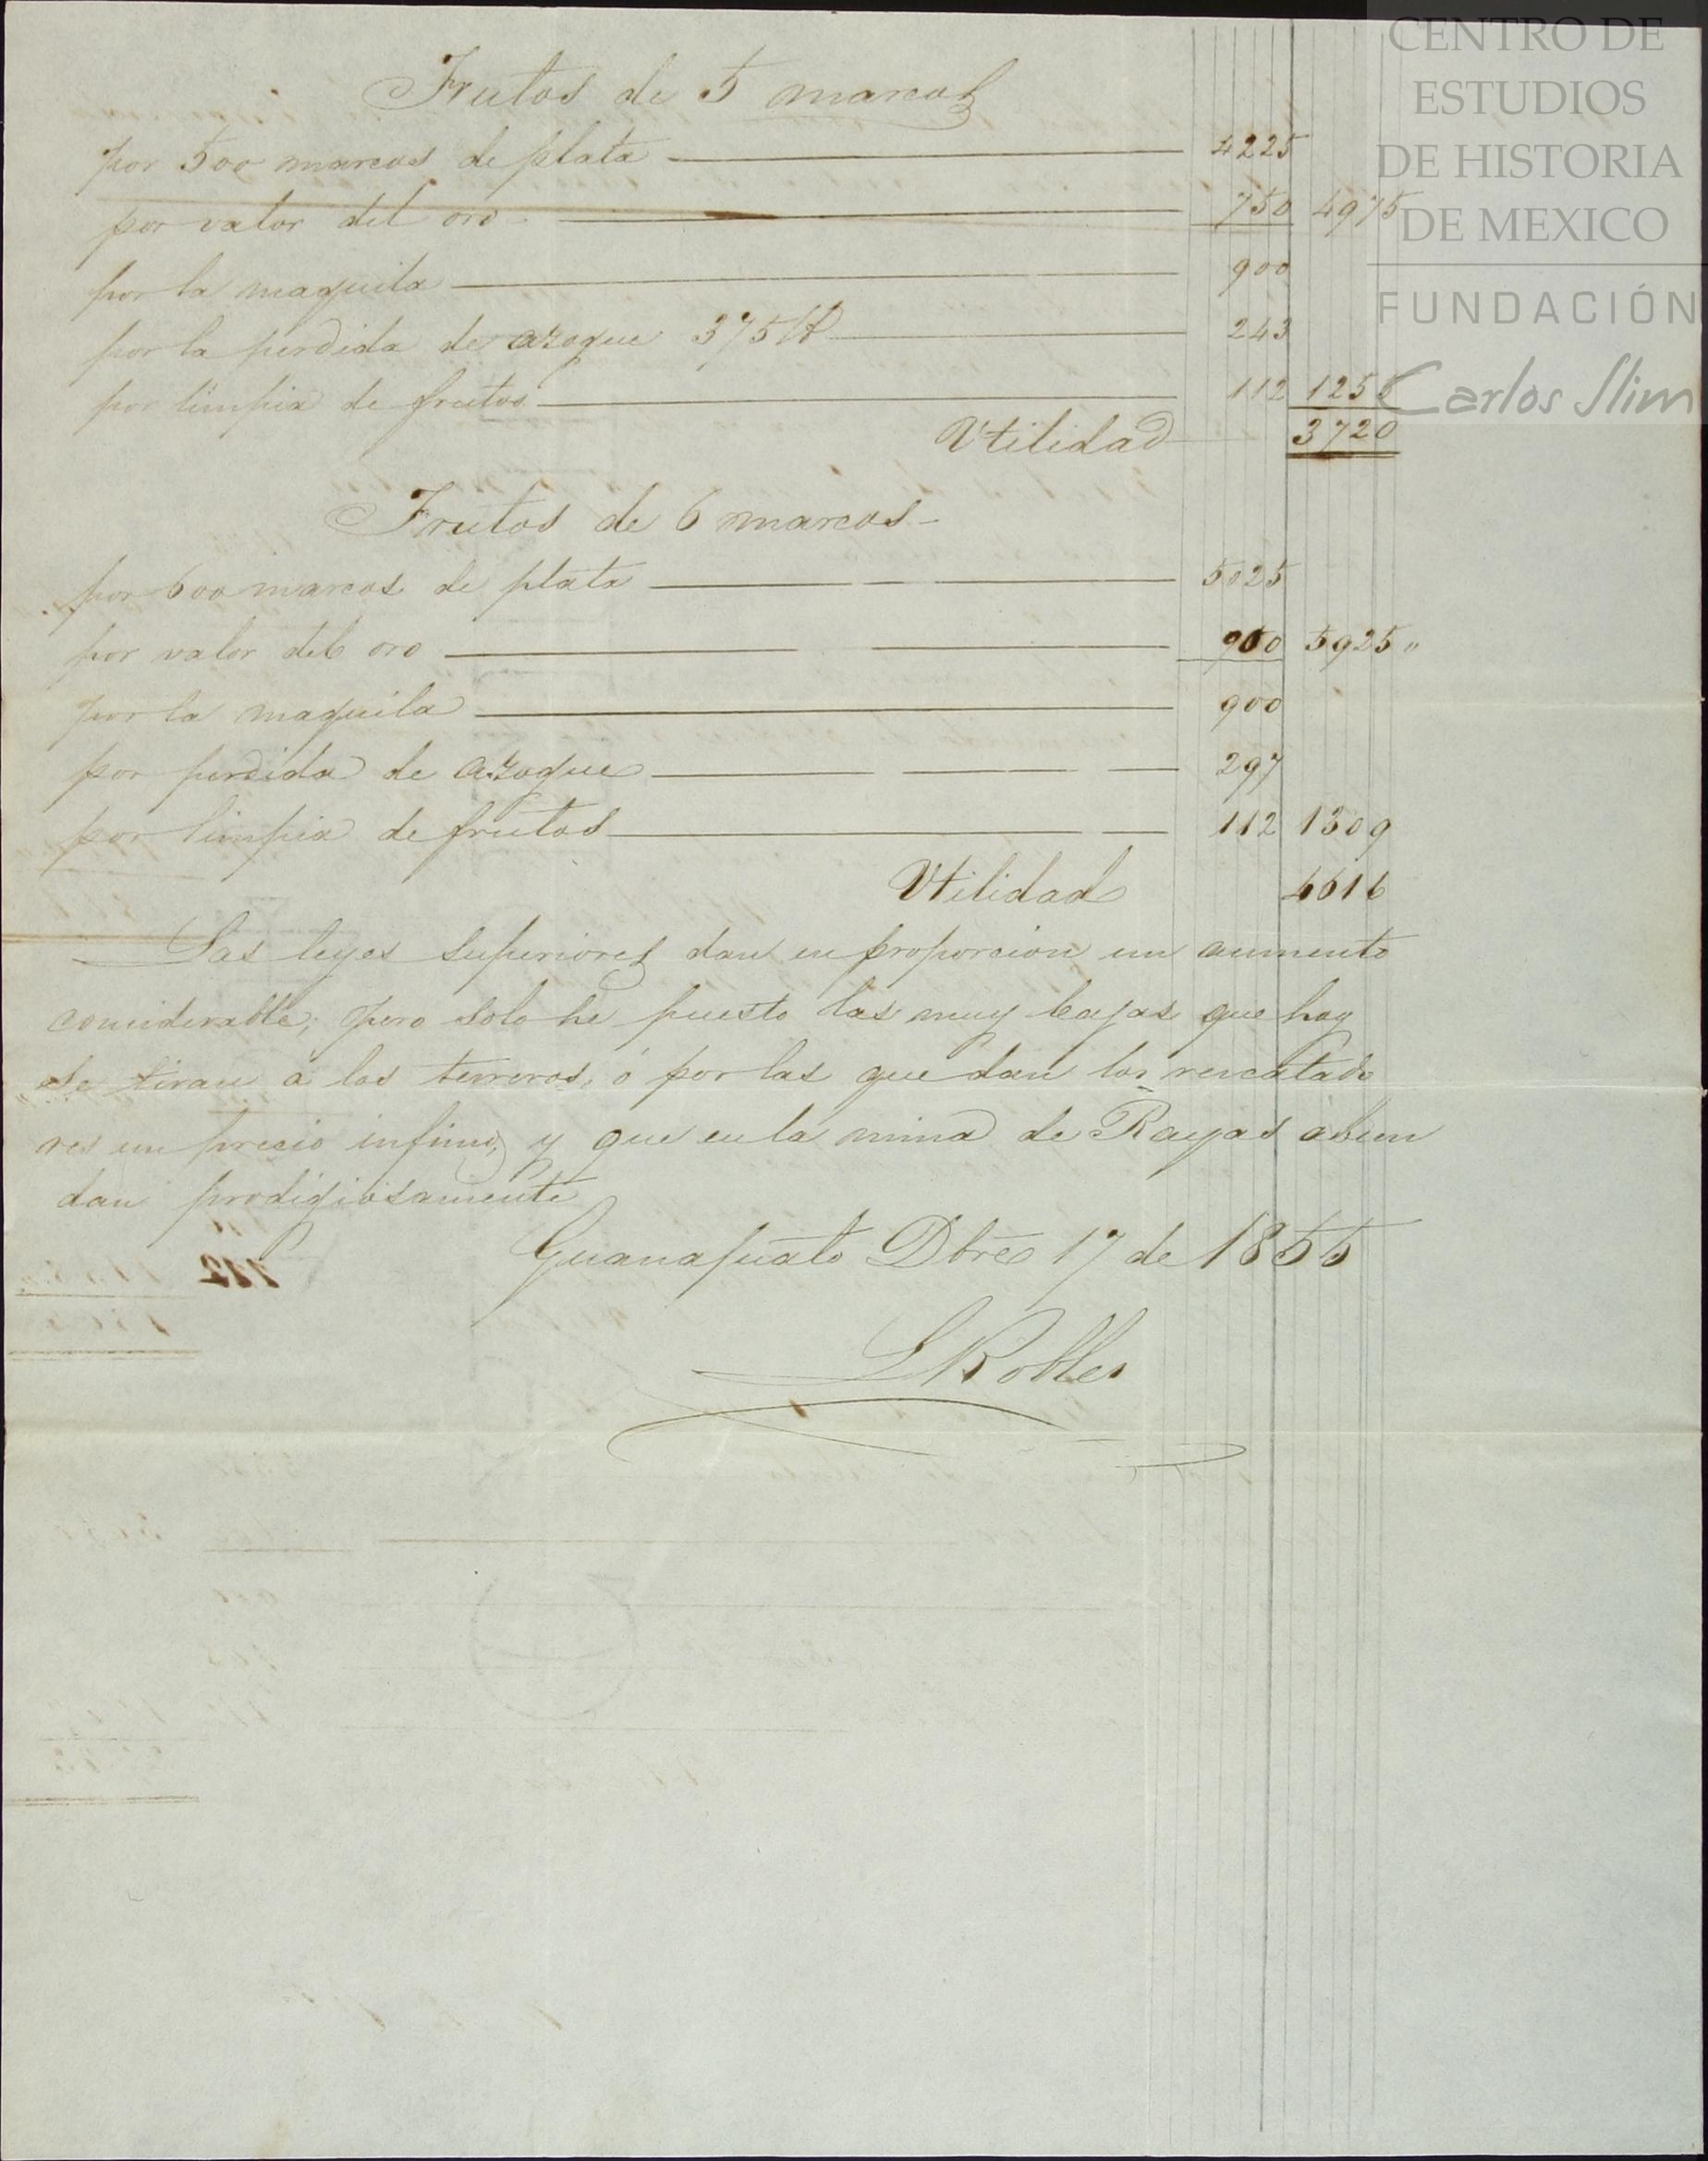 Frutos de 5 marcos
por 500 marcos de plata 4225
por valor del oro 750 4975
por la maquila 900
por la perdida de azogue 375 lb 243
por limpia de frutos 112 1255
Utilidad 3720
Frutos de 6 marcos
por 600 marcos de plata 5025
por valor del oro 900 5925 "
por la maquila 900
por perdida de azogue 297
por limpia de frutos 112 1309
Utilidad 4616
Las leyes superiores dan en proporcion un aumento
considerable; pero solo he puesto las muy bajas que hoy
se tiran a los terreros, ó por las que dan los rescatado
res un precio infimo, y que en la mina de Rayas abun
dan prodigiosamente
Guanajuato Dbre 17 de 1855
L Robles
CENTRO DE
ESTUDIOS
DE HISTORIA
DE MEXICO
FUNDACIÓN
Carlos Slim